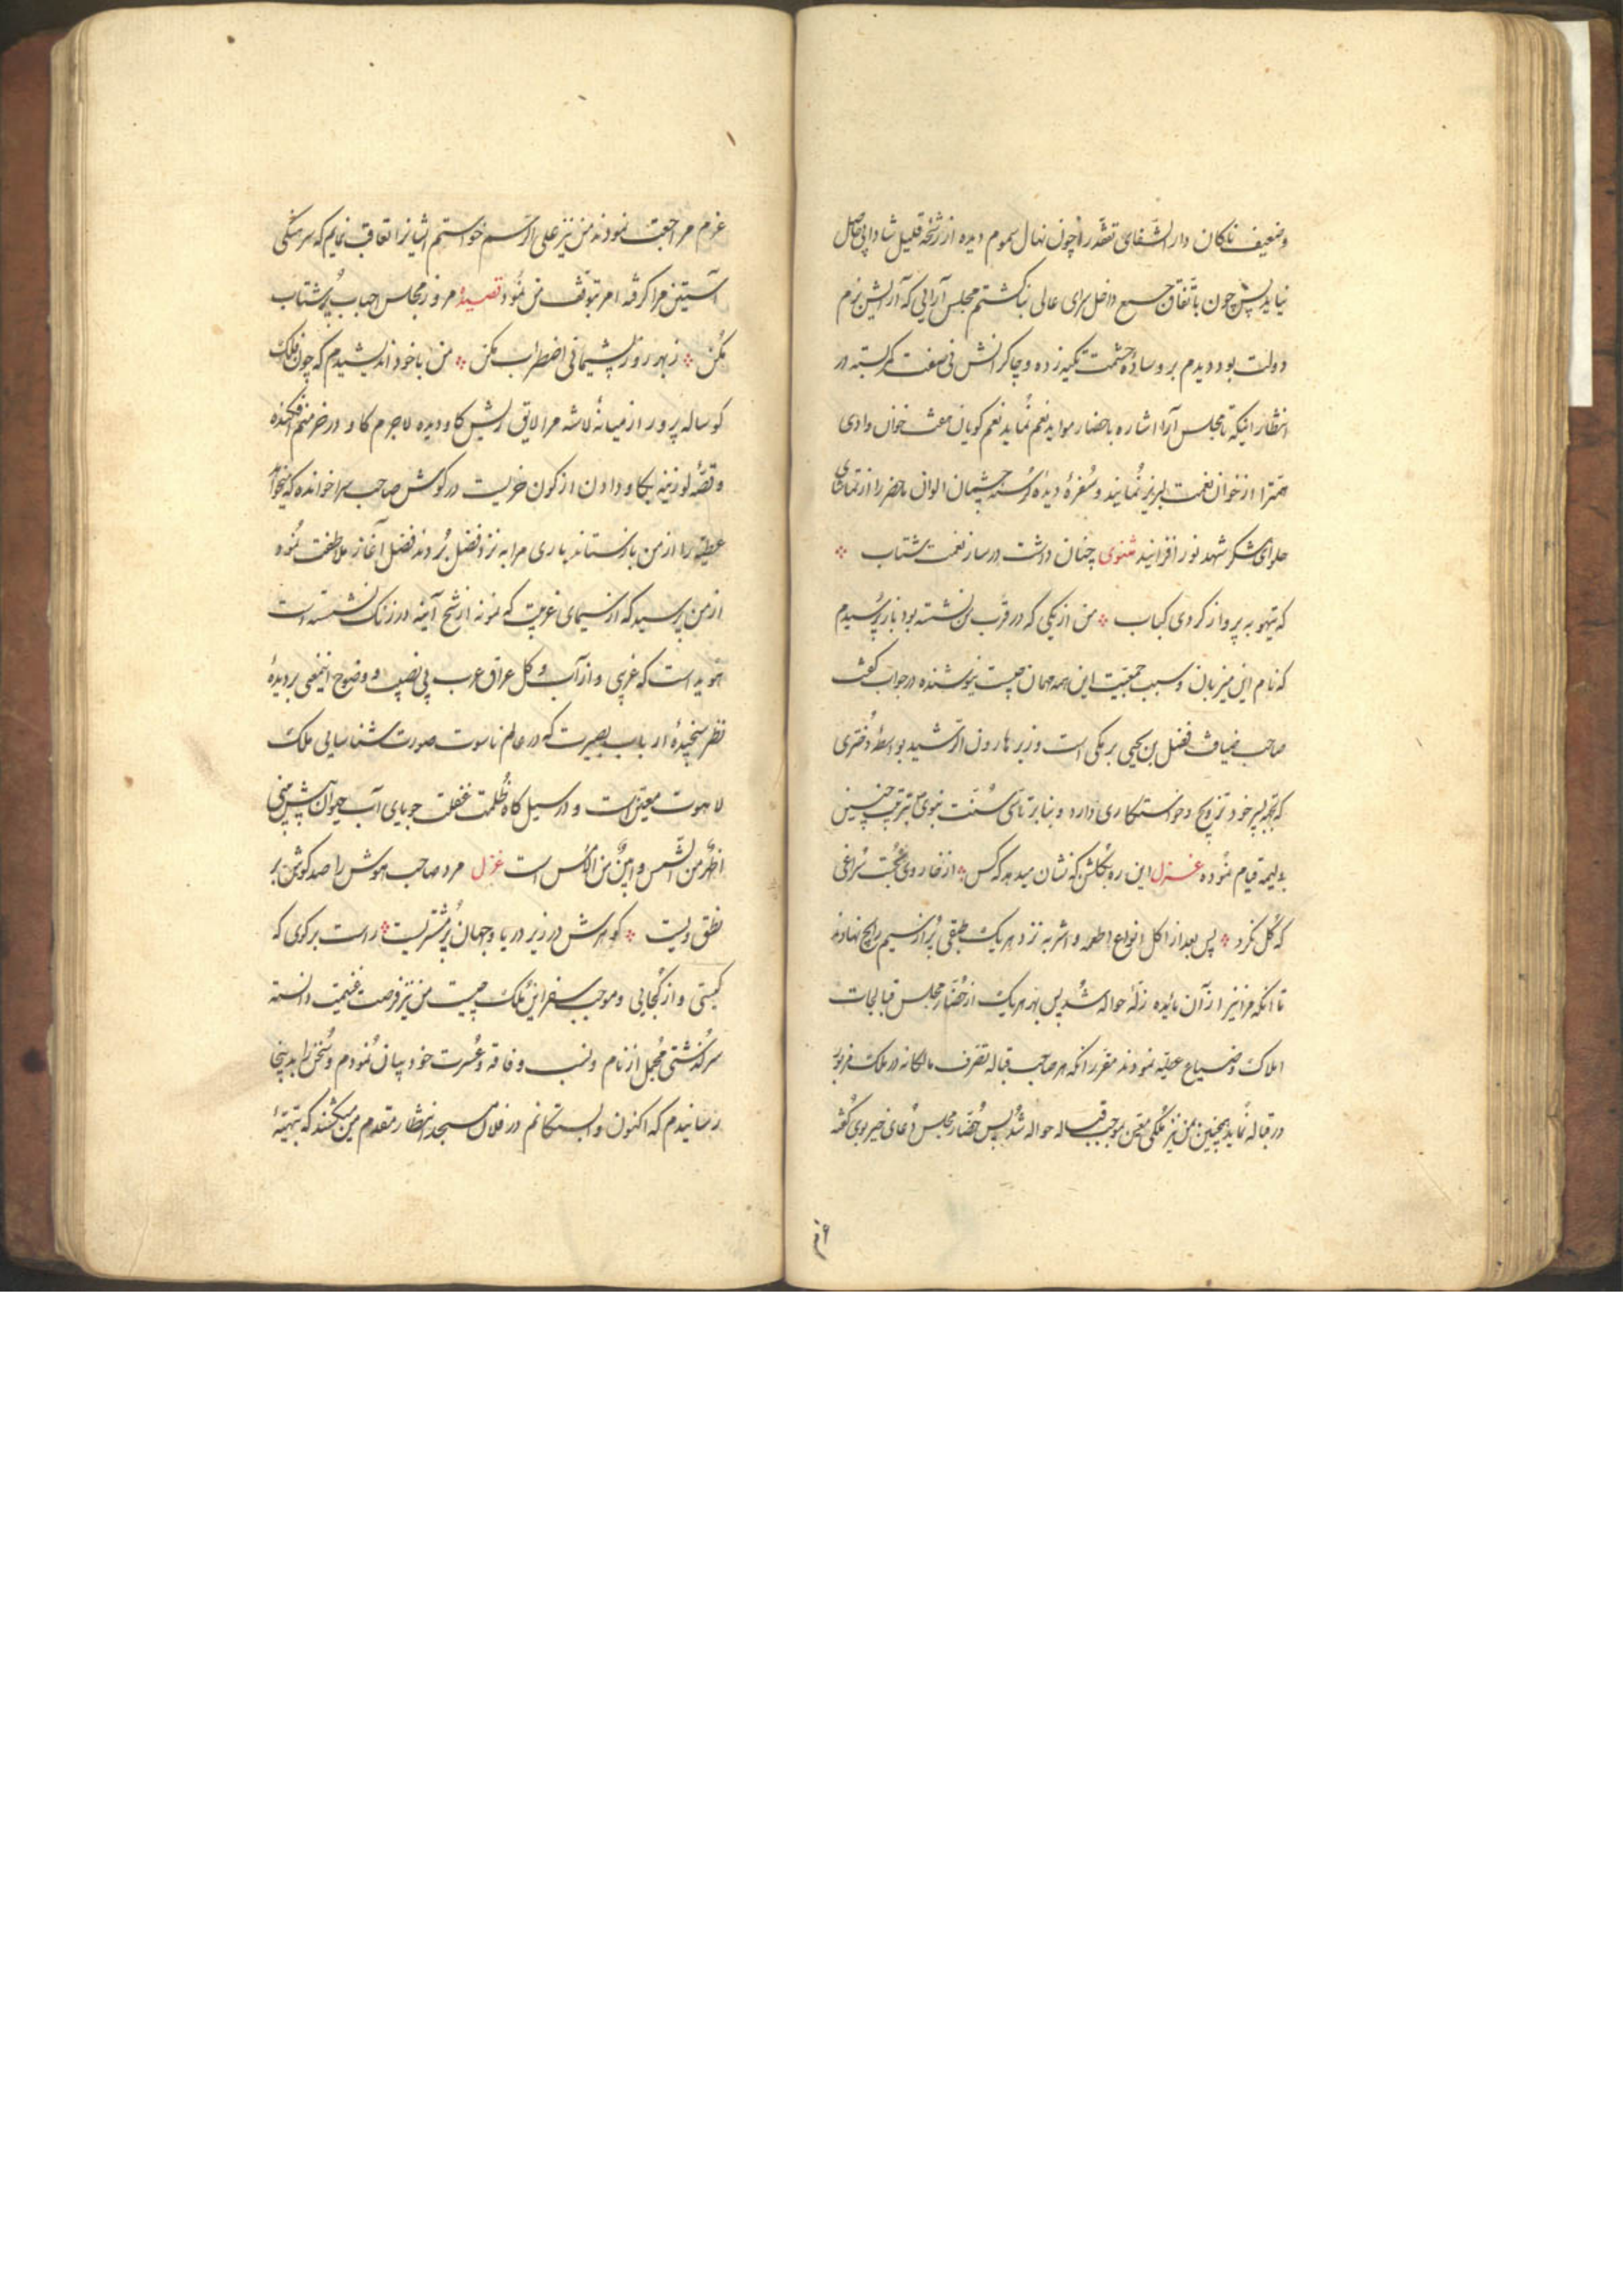 وضعیف ناکان دار الشفای تفقد را چون نهال سموم دیده از رشحه قلیل شادابی حاصل
نیاید پس چون باتفاق جمیع داخل سرای عالی بنا کشتم مجلس آرایی که آرایش بزم
دولت بود دیدم بر وساده حشمت تکیه زده و چاکرانش فی صفت کمر بسته در
انتظار اینکه تا مجلس آرا اشاره باحضار مواید نعم نماید نعم کویان مفت خوان وادی
را از خوان نعمت لبریز نمایند و سفره دیده کرسنه چشمان الوان ماحضر را از تماشای
حلوای شکر شهد نور افزایند مثنوی چنان داشت در ساز نعمت شتاب
که تیهو به پرواز کردی کباب من از یکی که در قرب من نشسته بود باز پرسیدم
که نام این میزبان و سبب جمعیت این همه مهمان چیست نیوشنده در جواب کفت
صاحب ضیافت فضل بن یحیی برمکی است وزیر هارون الرشید بواسطه دختری
که بجهة پسر خود تزویج و خواستکاری دارد و بنا بر تاسی سنت نبوی بترتیب چنین
ولیمه قیام نموده غزل این ره بکلشن که نشان میدهد که کس از خار وی محبت سراغی
که کل نکرد پس بعد از اکل انواع اطعمه و اشربه نزد هر یک طبقی پر از سیم رایج نهادند
تا انکه مرا نیز از آن مائده زله حواله شد پس بهر هر یک از حضار مجلس قبالجات
املاک و ضیاع عطیه نمودند مقرر انکه هر صاحب قباله تصرف مالکانه در ملک مزبور
در قباله نماید همچنین من نیز ملکی معین بموجب قباله حواله شد پس حضار مجلس دعای خیر بوی کفته
عزم مراجعت نمودند من نیز علی الرسم خواستم ایشانرا تعاقب نمایم که سرهنکی
آستین مرا کرفته امر بتوقف من نمود قصیده مرو ز مجلس احباب پر شتاب
مکن ز بهر روز پشیمانی اضطراب مکن من با خود اندیشیدم که چون فلک
کوساله پرور از میانه لاشه مرا لایق ریش کاو دیده لاجرم کاو در خرمنم افکنده
و قصه لوزینه بکاو دادن از کون خریست در کوش صاحب سرا خوانده که میخواهد
عطیه را از من بازستاند باری مرا به نزد فضل بردند فضل آغاز ملاطفت نموده
از من پرسید که از سیمای غربت که نمونه از شح آینه در زنک نشسته است
هویداست که غریبی و از آب و کل عراق عرب بی نصیب و وضوح اینمعنی بر دیده
نظر سنجیده ارباب بصیرت که در عالم ناسوت صورت شناسایی ملک
لاهوت معنیست و در سیل کاه ظلمت غفلت جویای آب حیوان پیش بینی
اظهر من الشمس و ابین من الامس است غزل مرد صاحب هوش را صد کوش بر
نطق ویست کوهرش در زیر دریا و جهان پر مشتریست راست برکوی که
کیستی و از کجایی و موجب سفر این ملک چیست من نیز فرصت غنیمت دانسته
سرکذشتی مجمل از نام و نسب و فاقه و عسرت خود بیان نمودم و سخن را بدینجا
رسانیدم که اکنون وابستکانم در فلان مسجد انتظار مقدم من میکشند که بتهیه